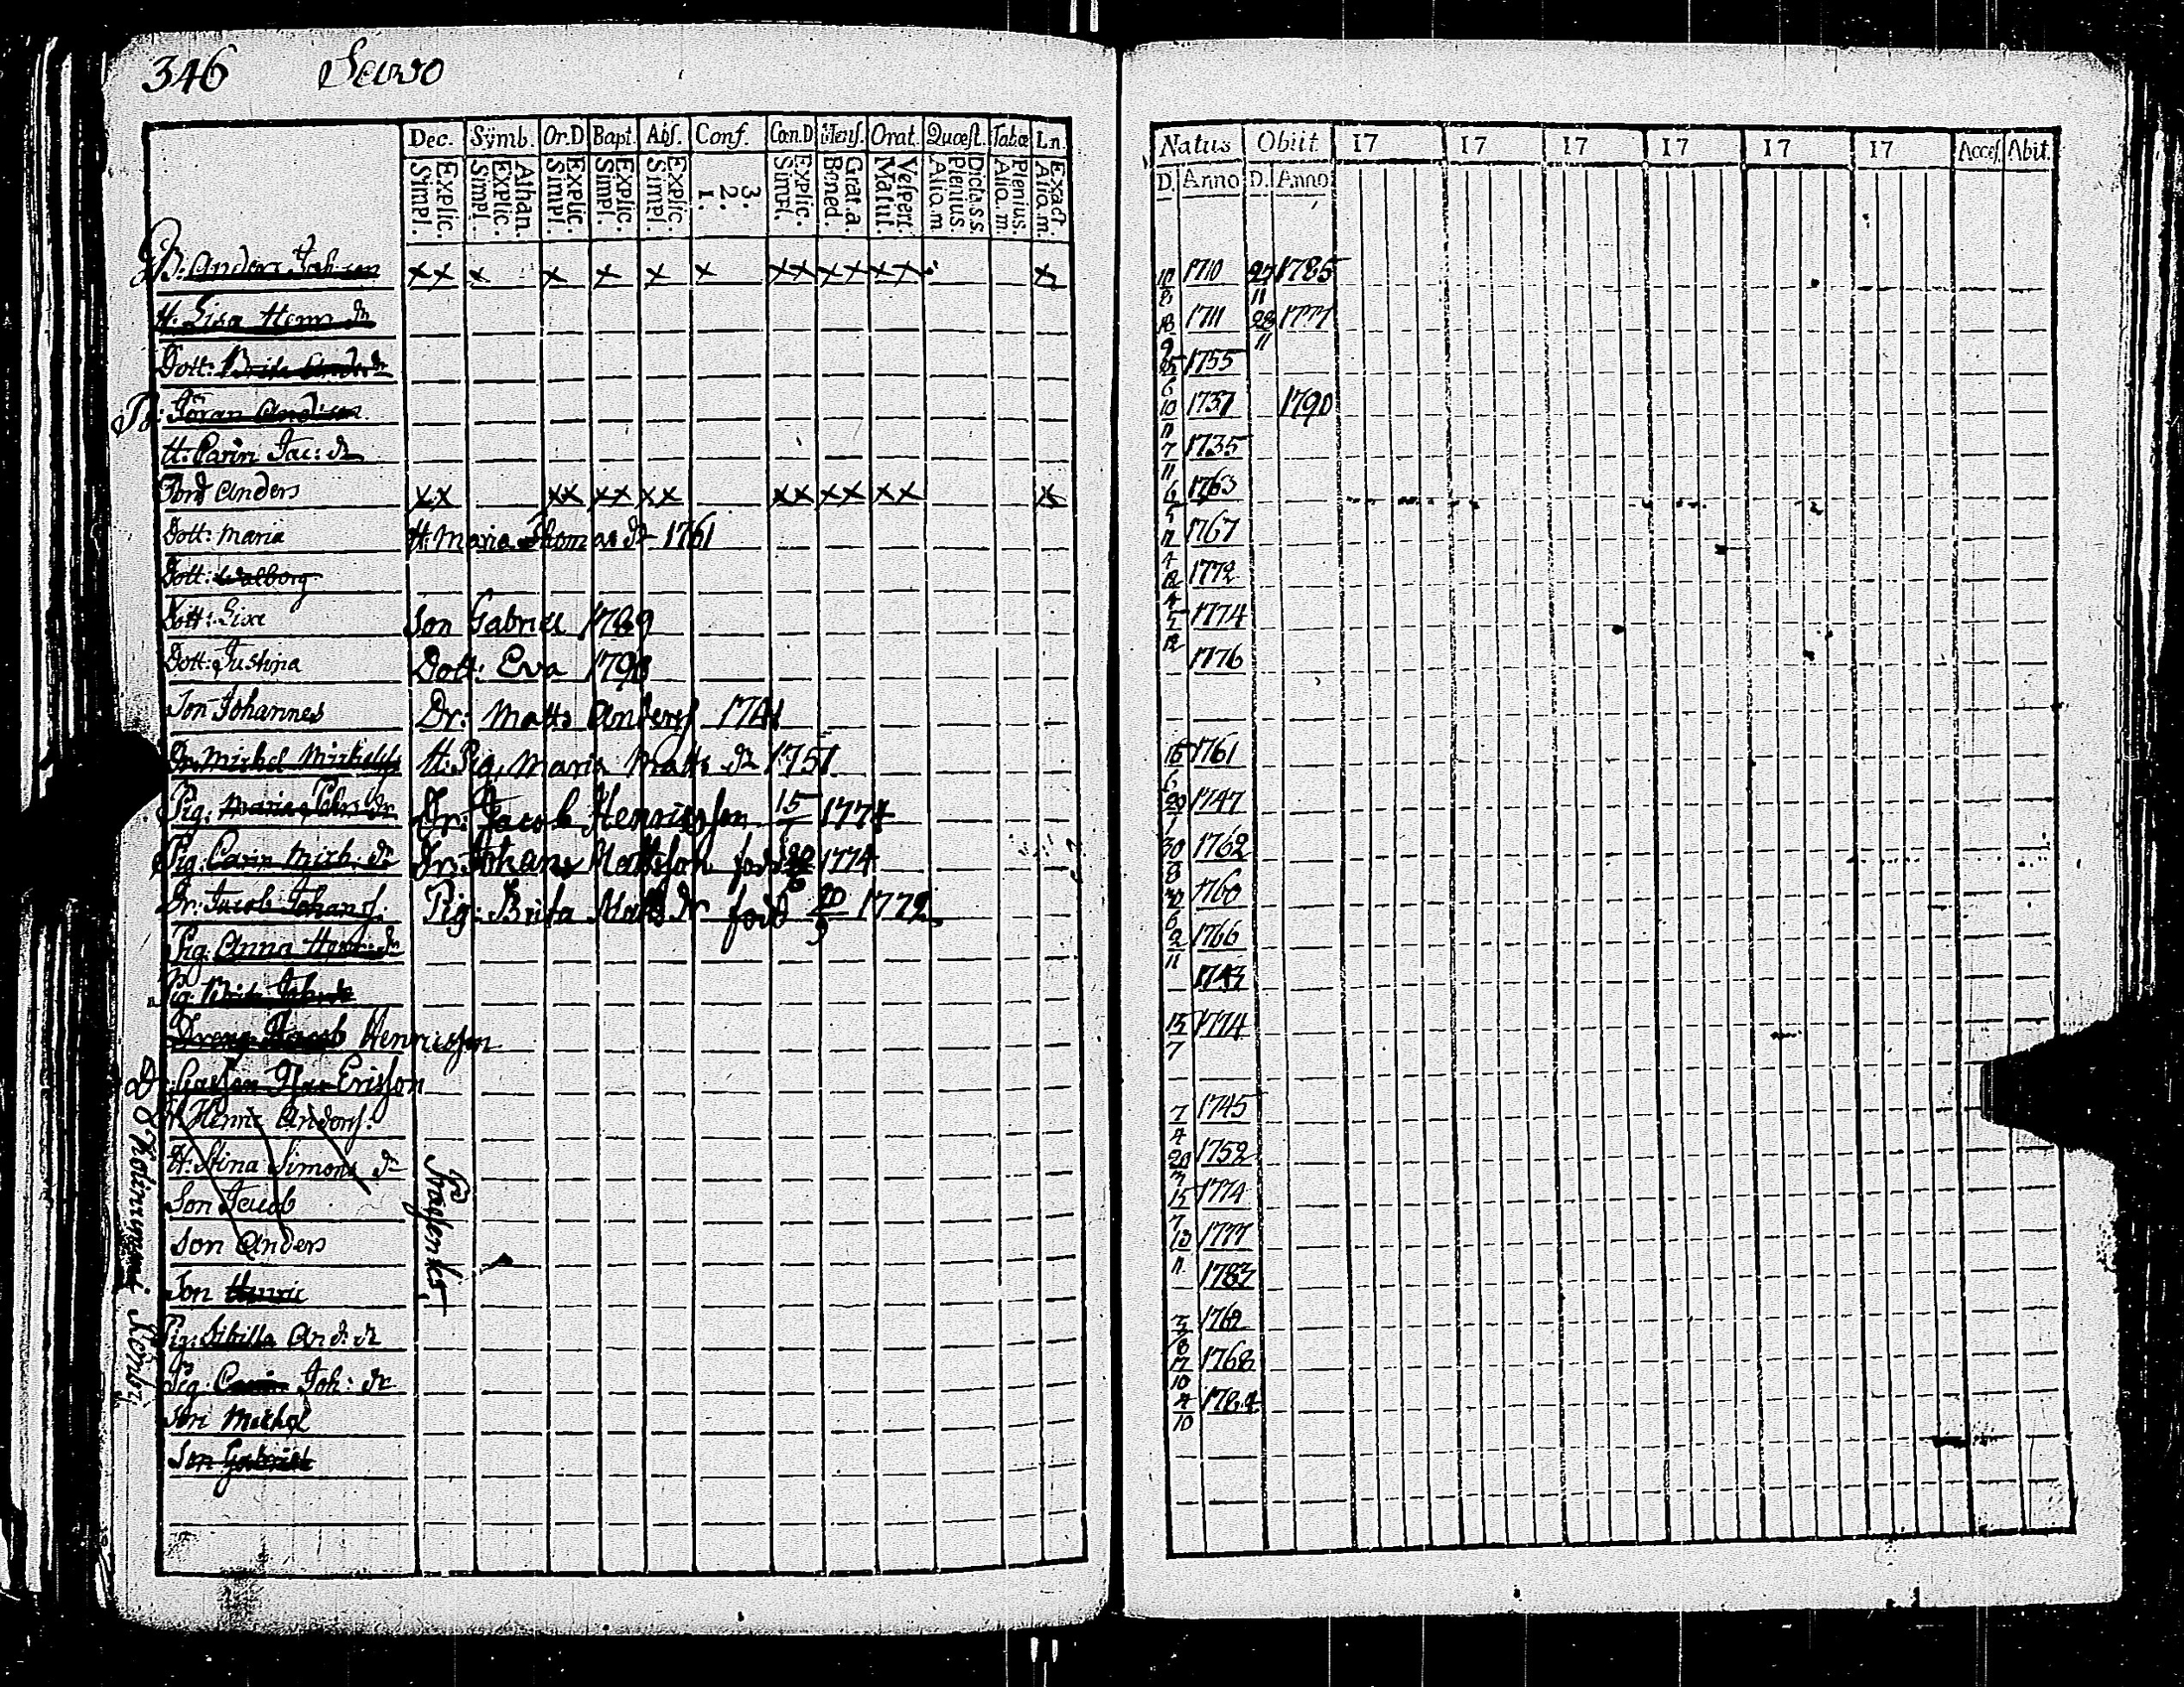 346 Sawo
Dec. Symb. Or.D Bapt. Abs. Conf. Can.D Mens. Orat. Quæst. Tabæ Ln.
Simpl. Explic. Simpl. Explic. Athan. Simpl. Explic. Simpl. Explic. Simpl. Explic. 1. 2. 3. Simpl. Explic. Bened. Grat.a. Matut. Vespert. Aliq.m Plenius. Dicta.s.s Aliq.m Plenius. Aliq.m Exact.
Natus Obiit 17 17 17 17 17 17 Acces. Abit.
D. Anno D. Anno
B: Anders Joh son x x x x x x x x x x x x x x 10/8 1710 27/11 1785
H: Lisa Henr dr 18/9 1711 28/11 1777
Dott: Brita And. dr 25/6 1755
B: Jöran Anderson 10/11 1737 1790
H: Carin Jac: dr 7/11 1735
Anders x x x x x x x x x x x x x x x 6/5 1763
Dott: Maria H: Maria Thomas dr 1761 1767
Dott: Walborg 1772
Dott: Lisa Son Gabriel 1789 1774
Dott: Justina Dott: Eva 1776
Son Johannes Dr: Matts Anderss
Dr: Michel Michelss H: Pig. Maria Matts dr 1751 15/6 1761
Pig: Maria dr Dr: Jacob Henricsson 15/7 1774 20/1 1747
Pig: Carin Mich. dr Dr: Johans Mattsson född 1774 30/8 1762
Dr: Jacob Johans. Pig: Brita Matts dr född 20/9 1772 1760
Pig: Anna Henr: dr 2/11 1766
Pig: Brita 1743
Dreng Jacob Henricsson 15/7 1774
Ericsson
Henric Anders. 7/4 1745
H: Stina Simons dr 20/3 1752
Son Jacob 15/7 1774
Son Anders 1777
Son Henric 1783
Pig: Sibilla And: dr 1762
Pig: Carin Joh: dr 17/10 1768
Son Michel 4/10 1784
Son Gabriel